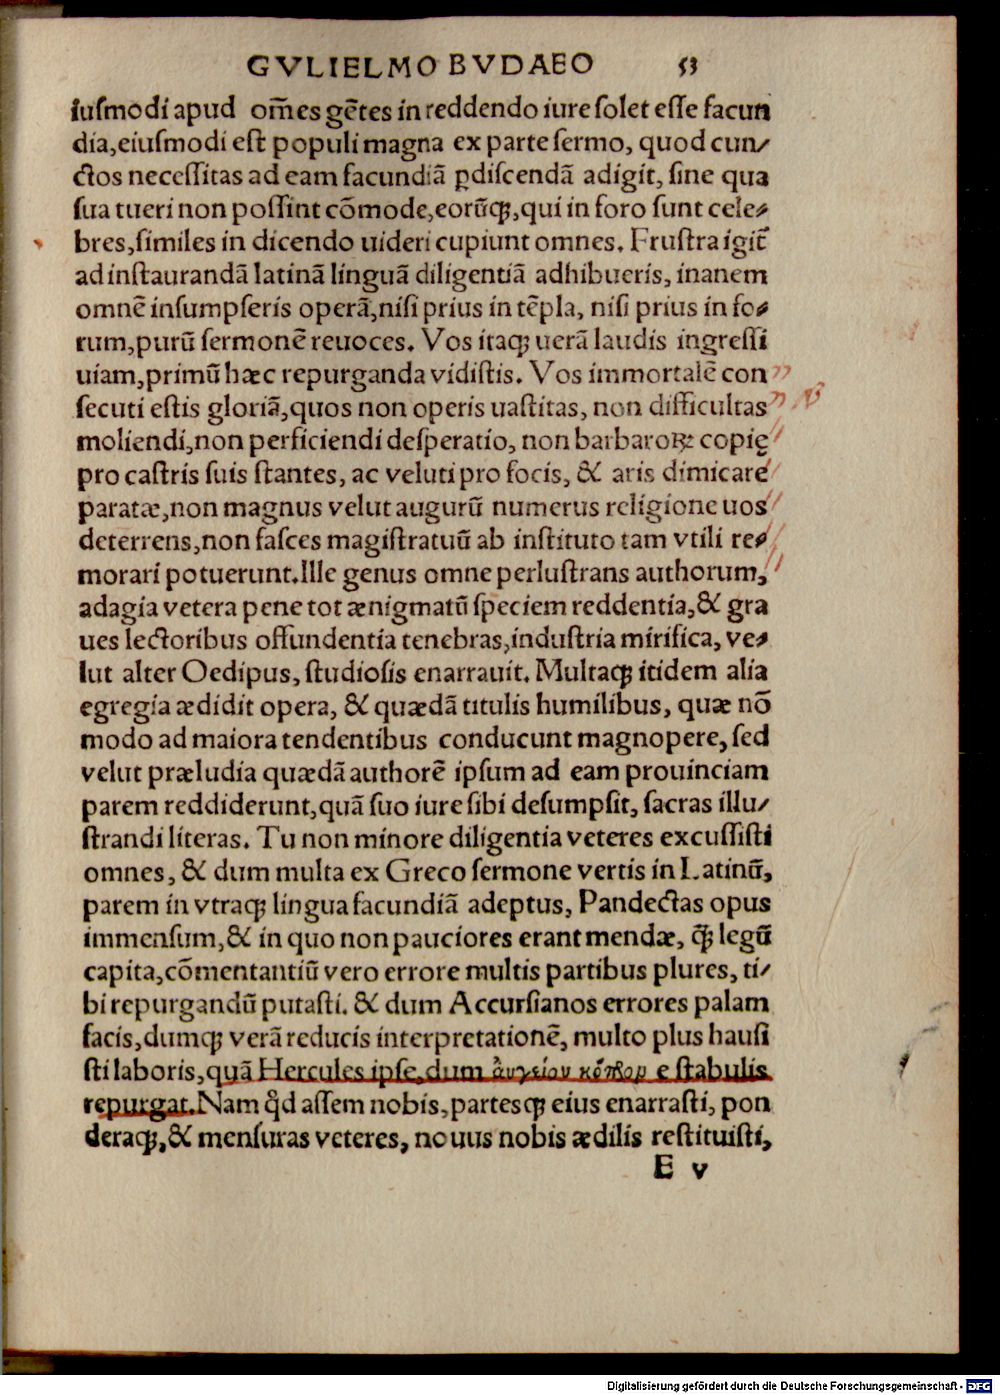 GVLIELMO BVDAEO 53
iuſmodi apud om̄es gētes in reddendo iure ſolet eſſe facun
dia,eiuſmodi eſt populi magna ex parte ſermo, quod cun⸗
ctos neceſſitas ad eam facundiā ꝑdiſcendā adigit, ſine qua
ſua tueri non poſſint cōmode,eorūq;,qui in foro ſunt cele⸗
bres,ſimiles in dicendo uideri cupiunt omnes. Fruſtra igit̄
ad inſtaurandā latinā linguā diligentiā adhibueris, inanem
omnē inſumpſeris operā,niſi prius in tēpla, niſi prius in fo⸗
rum,purū ſermonē reuoces. Vos itaq; uerā laudis ingreſſi
uiam,primū hæc repurganda vidiſtis. Vos immortalē con
ſecuti eſtis gloriā,quos non operis uaſtitas, non difficultas
moliendi,non perficiendi deſperatio, non barbaroꝝ copię
pro caſtris ſuis ſtantes, ac veluti pro focis, & aris dimicare
paratæ,non magnus velut augurū numerus religione uos
deterrens,non faſces magiſtratuū ab inſtituto tam vtili re⸗
morari potuerunt.Ille genus omne perluſtrans authorum,
adagia vetera pene tot ænigmatū ſpeciem reddentia,& gra
ues lectoribus offundentia tenebras,induſtria mirifica, ve⸗
lut alter Oedipus, ſtudioſis enarrauit. Multaq; itidem alia
egregia ædidit opera, & quædā titulis humilibus, quæ nō
modo ad maiora tendentibus conducunt magnopere, ſed
velut præludia quædā authorē ipſum ad eam prouinciam
parem reddiderunt,quā ſuo iure ſibi deſumpſit, ſacras illu⸗
ſtrandi literas. Tu non minore diligentia veteres excuſſiſti
omnes, & dum multa ex Greco ſermone vertis in Latinū,
parem in vtraq; lingua facundiā adeptus, Pandectas opus
immenſum,& in quo non pauciores erant mendæ, q̄̃ legū
capita,cōmentantiū vero errore multis partibus plures, ti⸗
bi repurgandū putaſti. & dum Accurſianos errores palam
facis,dumq; verā reducis interpretationē, multo plus hauſi
ſti laboris,quā Hercules ipſe,dum ἀυγείου κόπρον e ſtabulis
repurgat.Nam qd̄ aſſem nobis,partesq; eius enarraſti, pon
deraq;,& menſuras veteres, nouus nobis ædilis reſtituiſti,
E v
Digitalisierung gefördert durch die Deutsche Forschungsgemeinschaft - DFG